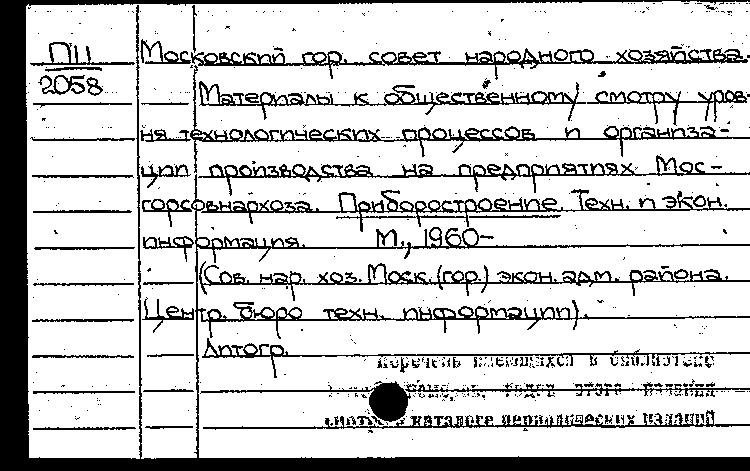 П11
2058
Московский гор. совет народного хозяйства.
Материалы к общественному смотру уров-
ня технологических процессов и организа-
ции производства на предприятиях Мос-
горсовнархоза. Приборостроение. Техн. и экон.
информация. М., 1960-
(Сов. нар. хоз. Моск. (гор.) экон. адм. района.
Центр. бюро техн. информации).
Литогр.
перечень имеющихся в библиотеке
годов этого издания
смотри в каталоге периодических изданий